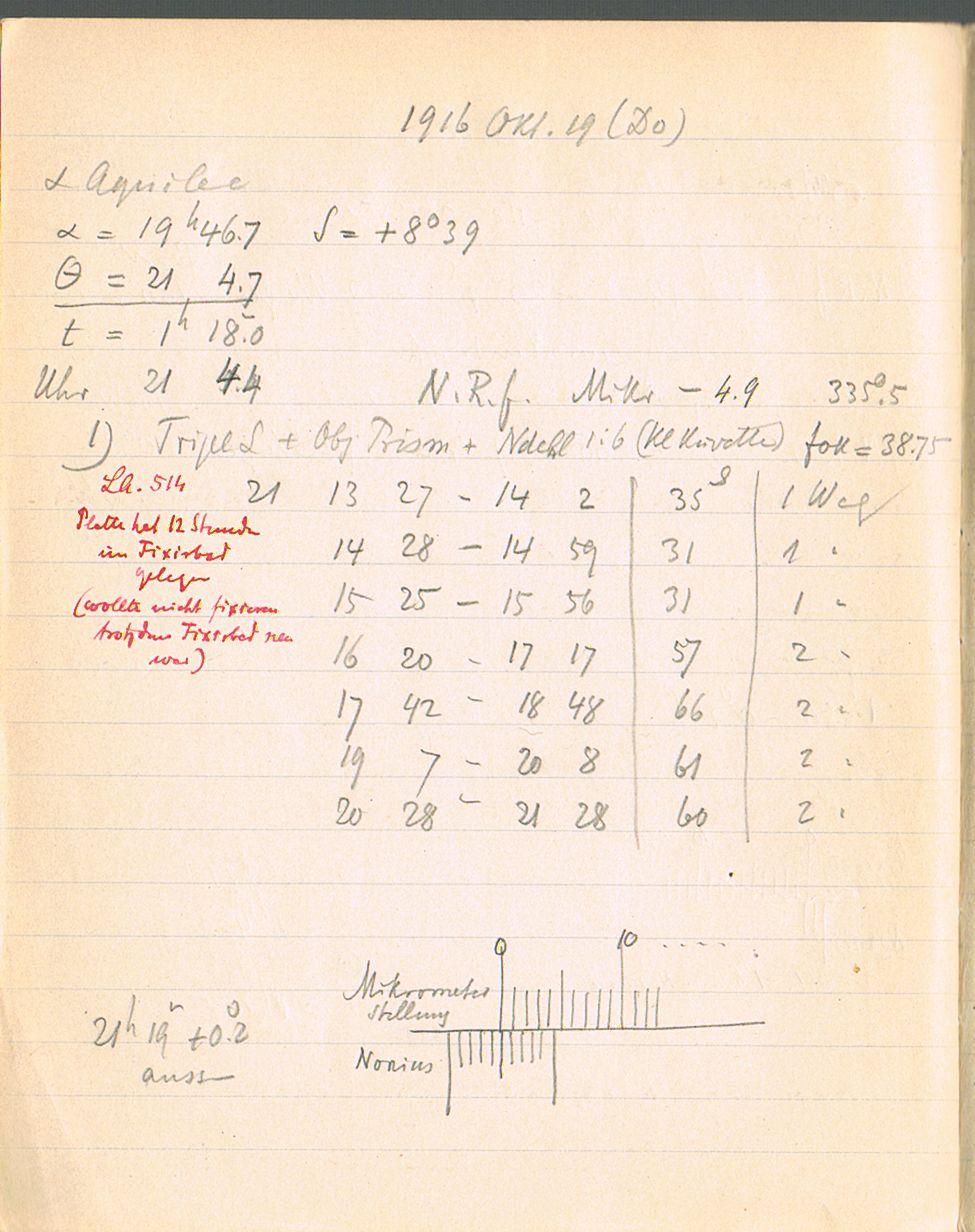 1916 Okt. 19 (Do)
α Aquilae
α = 19ʰ46.7 δ = +8°39
θ = 21 4.7
t = 1ʰ 18.0
Uhr 21 4.4 N.R.f. Mikr – 4.9 335°.5
1) Tripel + Obj Prism + 1:6 (Kl Küvette) fok = 38.75
LA. 514
Platte hat 12 Stunden
im Fixirbad
gelegen
(wollte nicht fixieren
trotzdem Fixirbad neu
war)
21 13 27 – 14 2 35ˢ 1 Weg
14 28 – 14 59 31 1 "
15 25 – 15 56 31 1 "
16 20 – 17 17 57 2 "
17 42 – 18 48 66 2 "
19 7 – 20 8 61 2 "
20 28 – 21 28 60 2 "
0 10 .....
Mikrometer
Stellung
Nonius
21ʰ 19ᵐ +0°.2
aussen